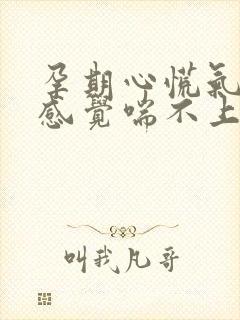 孕期心慌氣
感覺喘不上
叫我凡哥